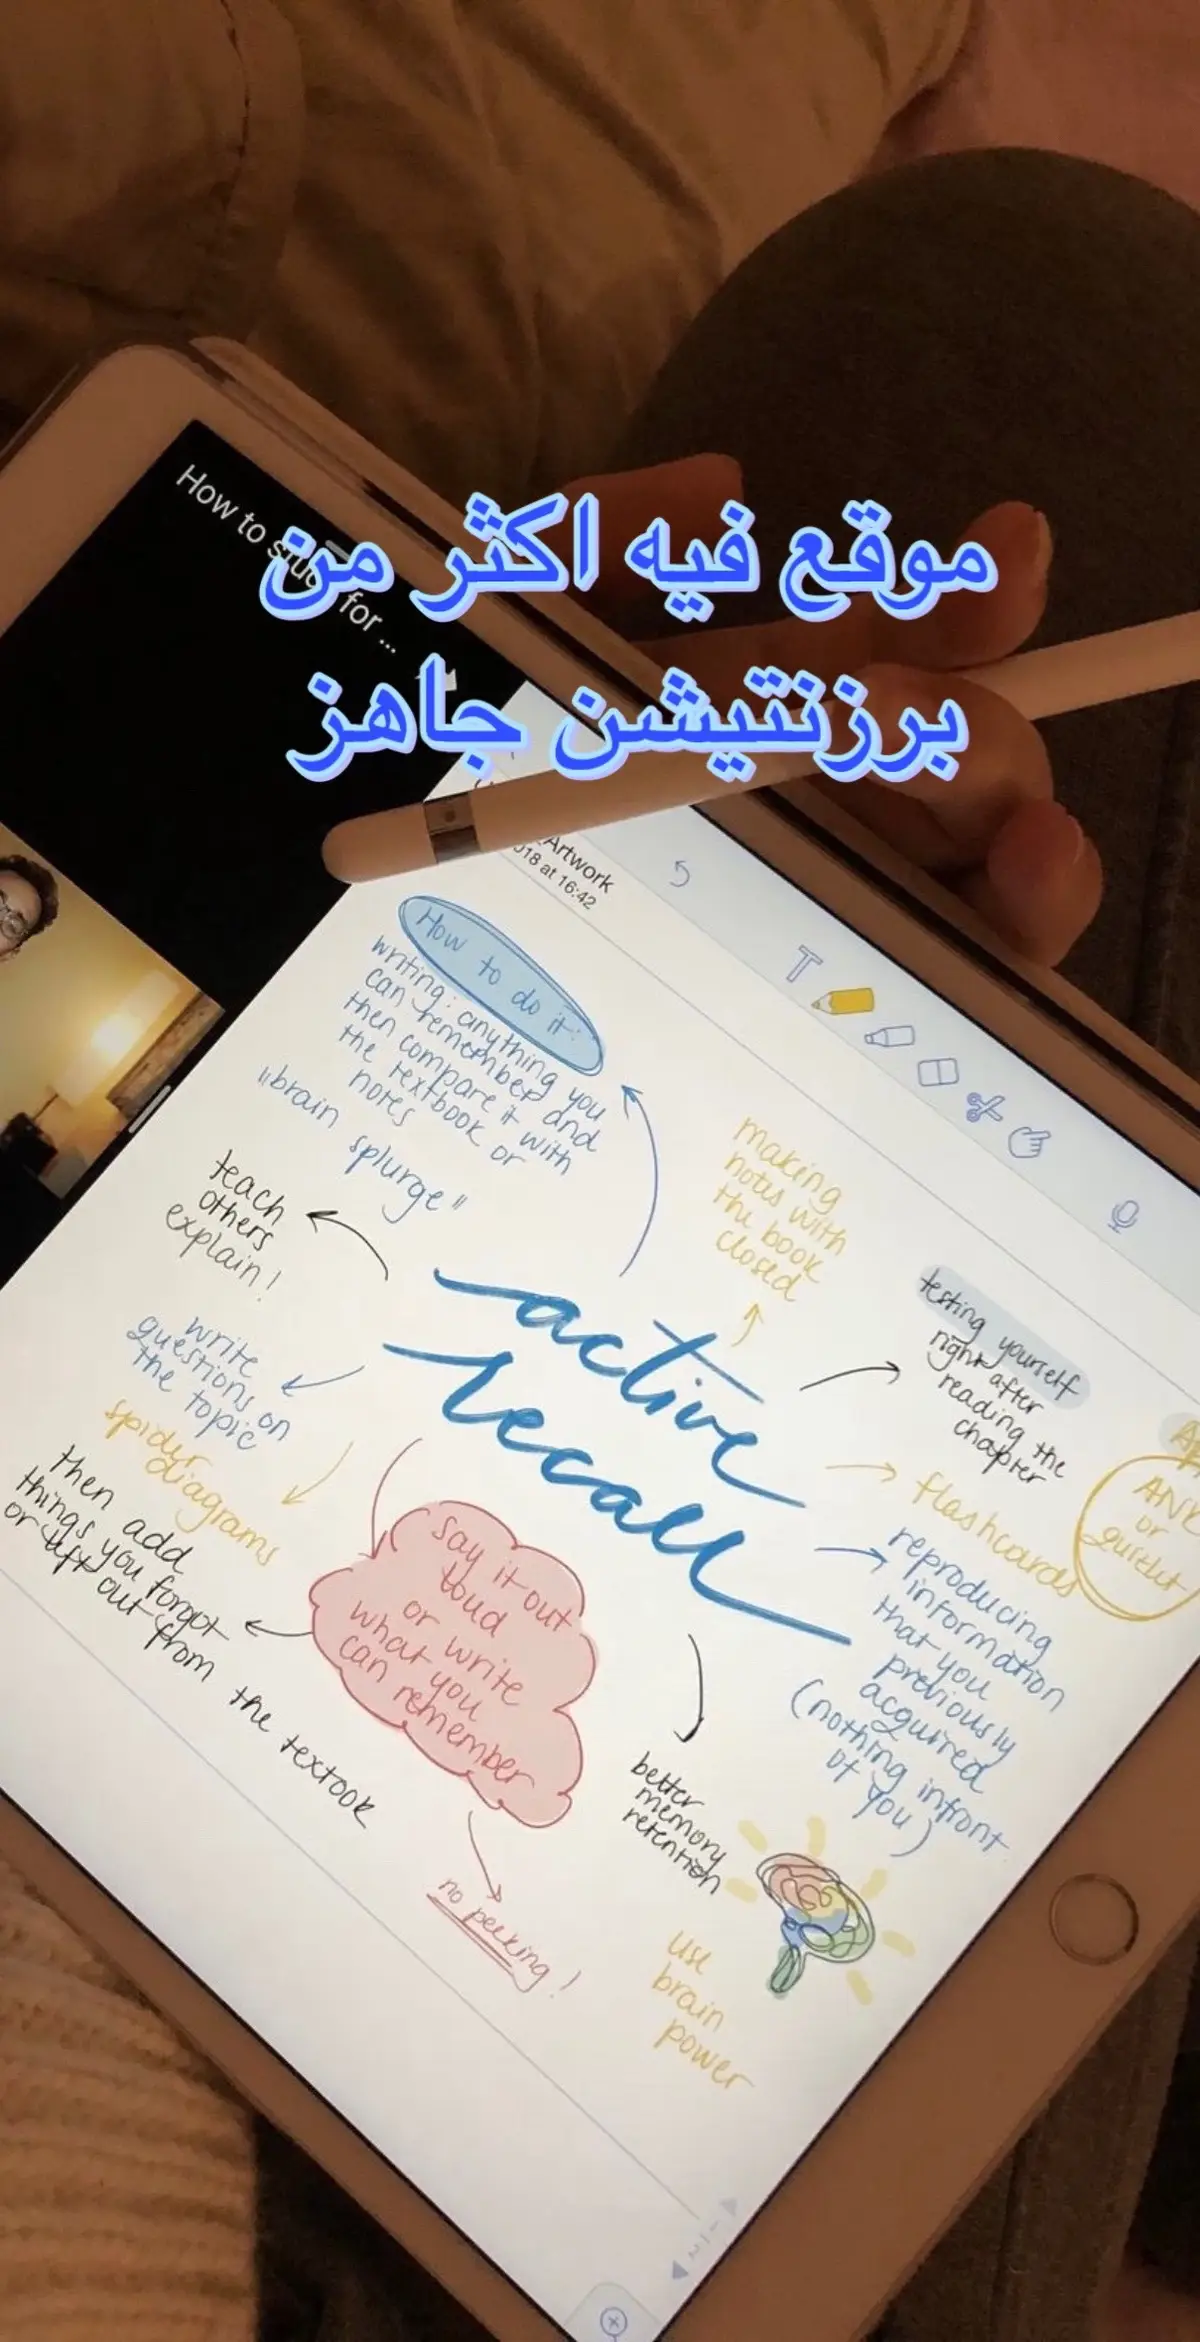 موقع فيه اكثر من
برزنتيشن جاهز
How to study for...
Artwork
018 at 16:42
How to do it:
writing: anything you
can remember and
then compare it with
the textbook or
notes
"brain splurge"
teach
others
explain!
write
questions on
the topic
spider
diagrams
then add
things you forgot
or left out from the textook
making
notes with
the book
closed
active
recall
testing yourself
right after
reading the
chapter
flashcards
or
reproducing
information
that you
previously
acquired
(nothing infront
of you)
say it out
loud
or write
what you
can remember
no peeking!
better
memory
retention
use
brain
power